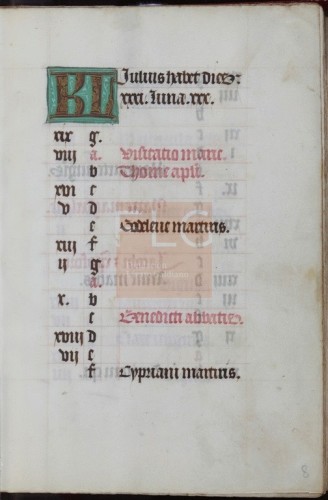 KL Julius habet dies:
xxxi. luna. xxx.
xix g.
viii a. Visitatio marie.
b Thome apli.
xvi c
v d
e Godeleue martiris.
xiii f
ii g.
a.
x. b
c Benedicti abbatis.
xviii d
vii e
f Cypriani martiris.
8